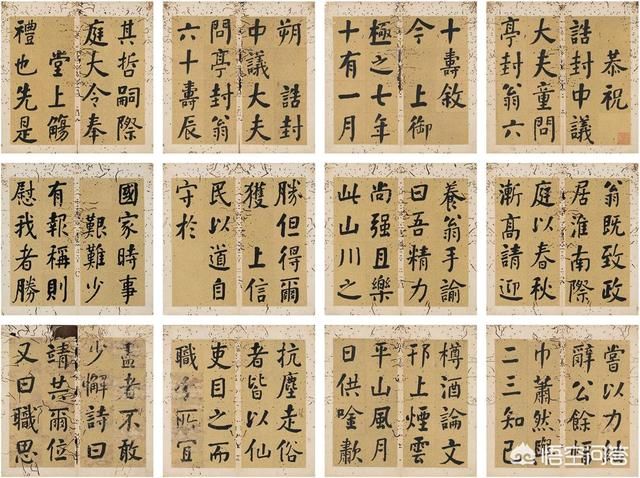 恭祝
誥封中議
大夫童問
亭封翁六
十壽敘
今 上御
極之七年
十有一月
朔 誥封
中議大夫
問亭封翁
六十壽辰
其哲嗣際
庭大令奉
堂上觴
禮也先是
翁既致政
居淮南際
庭以春秋
漸高請迎
養翁手諭
曰吾精力
尚强且樂
此山川之
勝但得爾
獲 上信
民以道自
守於
國家時事
艱難少
有報稱則
慰我者勝
嘗以力
辭公餘
巾蕭然
二三知己
樽酒論文
邗上煙雲
平山風月
日供唫歗
抗塵走俗
者皆以仙
吏目之而
職 所宜
盡者不敢
少懈詩曰
靖共爾位
又曰職思
悟空问答